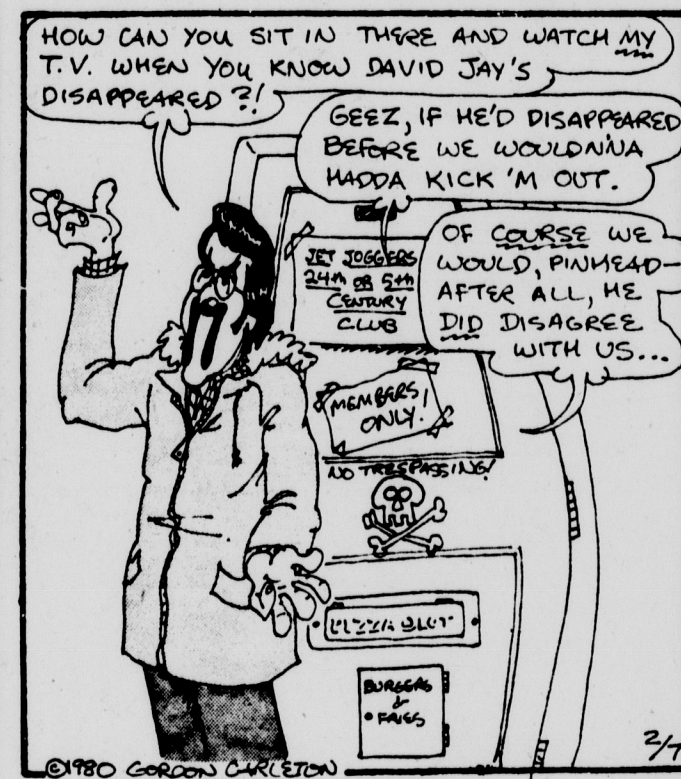 HOW CAN YOU SIT IN THERE AND WATCH MY
T.V. WHEN YOU KNOW DAVID JAY'S
DISAPPEARED?!
GEEZ, IF HE'D DISAPPEARED
BEFORE WE WOULDN'NA
HADDA KICK 'M OUT.
OF COURSE WE
WOULD, PINHEAD—
AFTER ALL, HE
DID DISAGREE
WITH US...
JET JOGGERS
24TH OR 5TH
CENTURY
CLUB
MEMBERS
ONLY.
NO TRESPASSING!
PIZZA SLOT
BURGERS
&
FRIES
2/7
©1980 GORDON CARLETON